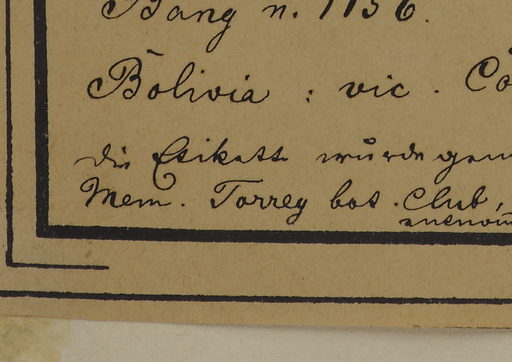 Bang n. 1156.
Bolivia : vic. Co
die Etikette wurde gem
Mem. Torrey bot. Club,
entnom